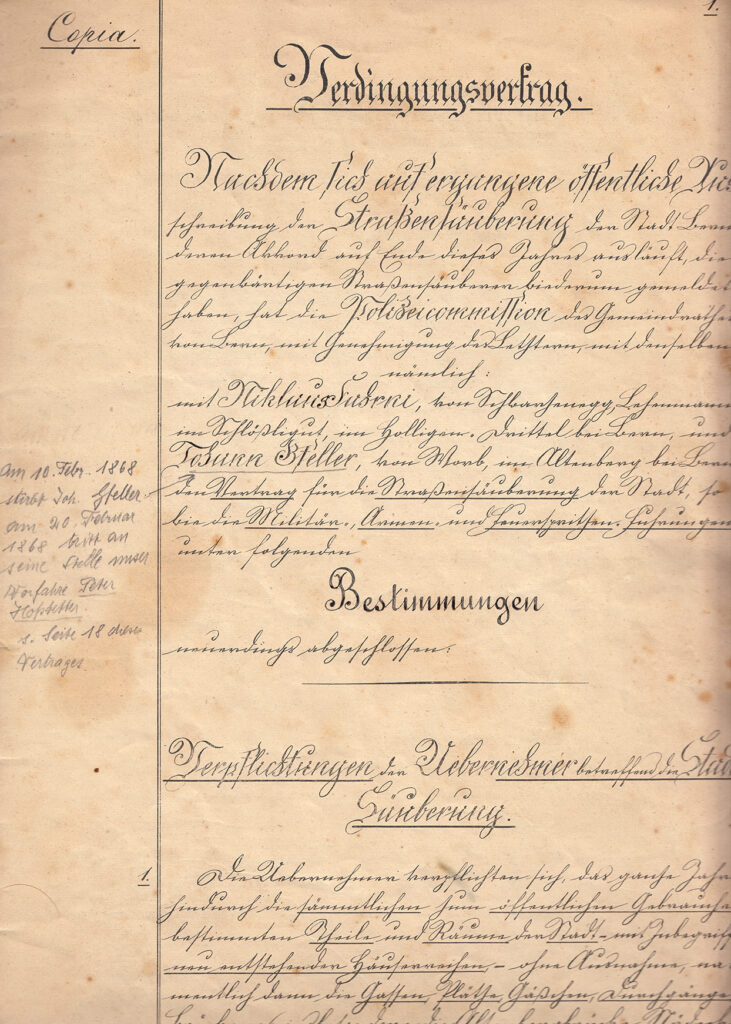 1.
Copia.
Verdingungsvertrag.
Nachdem sich auf ergangene öffentliche Aus
schreibung der Straßensäuberung der Stadt Bern
deren Akkord auf Ende dieses Jahres ausläuft, die
gegenwärtigen Straßensäuberer wiederum gemeldet
haben, hat die Polizeicommission des Gemeindrathes
von Bern, mit Genehmigung des Letztern, mit denselben
nämlich:
mit Niklaus, von Schwarzenegg, Lehenmann
im Schlößligut, im Holligen-Drittel bei Bern, und
Johann Steller, von Worb, im Altenberg bei Bern
den Vertrag für die Straßensäuberung der Stadt, so
wie die Militär-, Armen- und Feuerspritzen-Fuhrungen
unter folgenden
Bestimmungen
neuerdings abgeschlossen:
Am 10. Febr. 1868
stirbt Joh. Steller
am 20. Februar
1868 tritt an
seine Stelle unser
Vorfahre Peter
Hofstetter
s. Seite 18 dieses
Vertrages
Verpflichtungen der Uebernehmer betreffend die Stadt
Säuberung.
1.
Die Uebernehmer verpflichten sich, das ganze Jahr
hindurch die sämmtlichen zum öffentlichen Gebrauche
bestimmten Theile und Räume der Stadt – uns Inbegriff
neu entstehender Häuserreihen, – ohne Ausnahme, na
mentlich dann die Gassen, Plätze, Gäßchen, Durchgänge